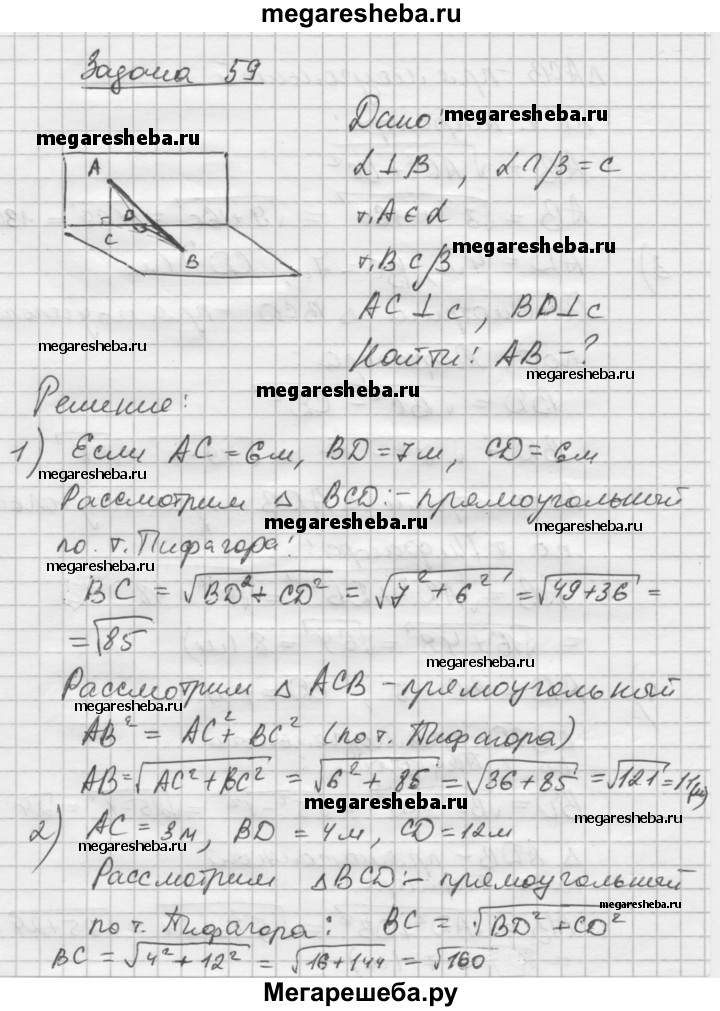 megaresheba.ru
Задача 59
megaresheba.ru
A
D
C
B
Дано: megaresheba.ru
α⊥β, α∩β=c
т.A∈α
megaresheba.ru
т.B⊂β
AC⊥c, BD⊥c
megaresheba.ru
Найти: AB-?
megaresheba.ru
megaresheba.ru
Решение:
1) Если AC=6м, BD=7м, CD=6м
megaresheba.ru
Рассмотрим Δ BCD:-прямоугольный
megaresheba.ru
по т. Пифагора:
megaresheba.ru
BC = √BD²+CD² = √7²+6² = √49+36 =
= √85
megaresheba.ru
Рассмотрим Δ ACB-прямоугольный
megaresheba.ru
AB² = AC²+BC² (по т. Пифагора)
AB=√AC²+BC² = √6²+85 = √36+85 = √121 = 11(м)
megaresheba.ru
megaresheba.ru
2) AC=3м, BD=4м, CD=12м
megaresheba.ru
Рассмотрим ΔBCD:-прямоугольный
megaresheba.ru
по т. Пифагора: BC = √BD²+CD²
BC = √4²+12² = √16+144 = √160
Мегарешеба.ру